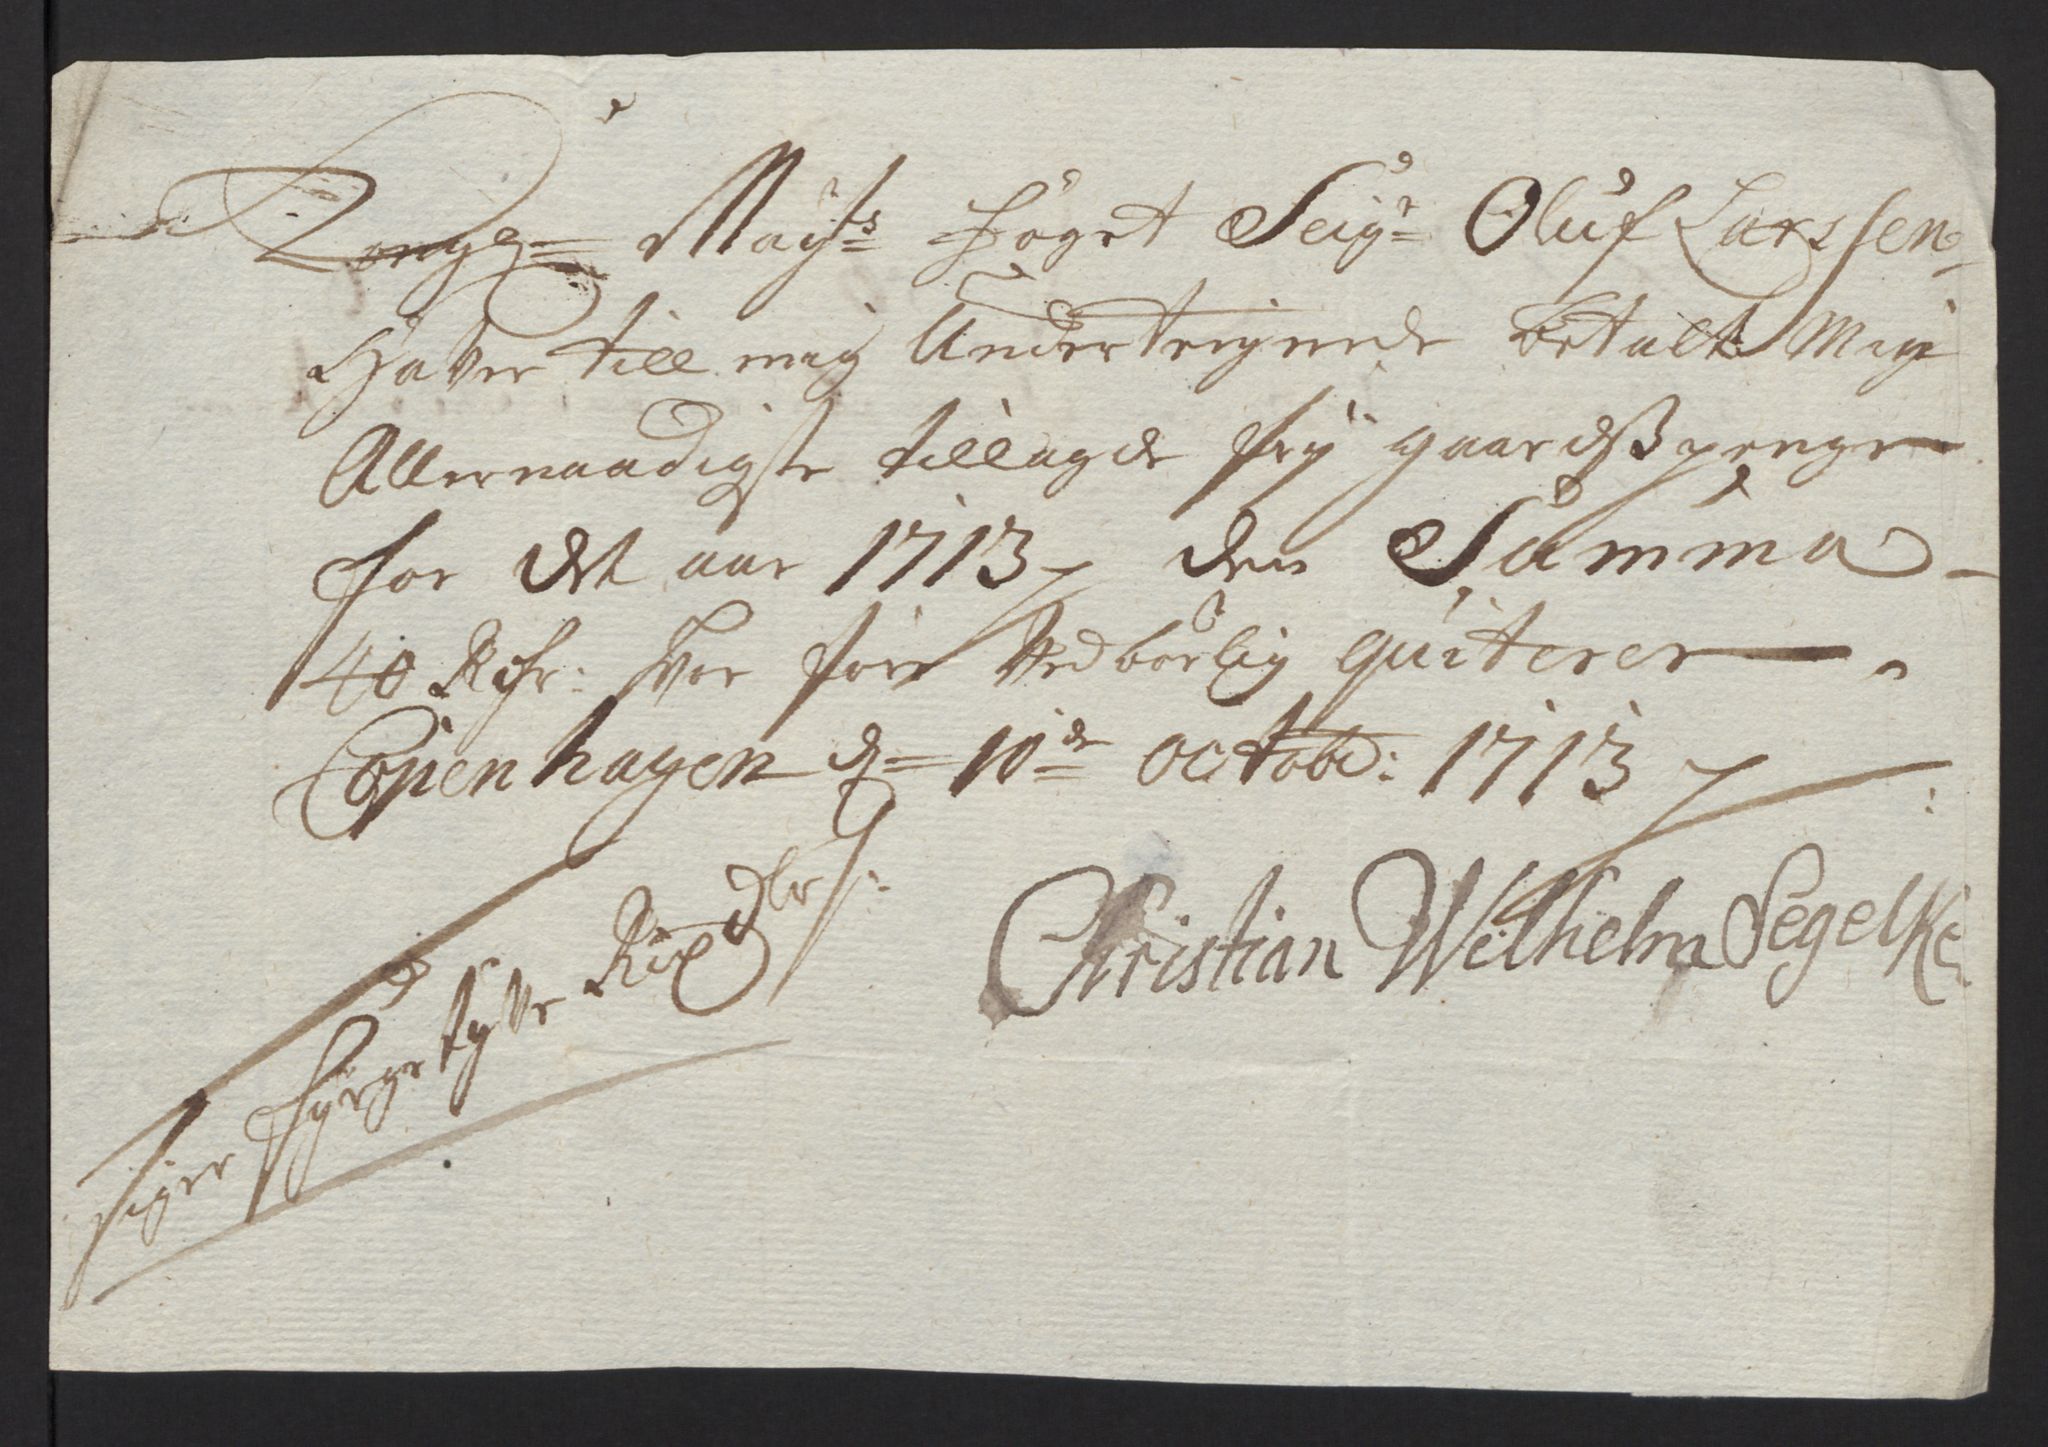 Kongl= Mayts foget Seigr= Oluf Larssen
Haver till mig Underteignede betalt Mig
Allernaadigste tillagde frÿ gaardsß penge
for det aar 1713 den Summa
40 Rdr: hvor fore Vedbørlig quiterer
Copenhagen d= 10de octobr: 1713
Christian Wilhelm Segelke
siger fyrgetyve Rixdlr